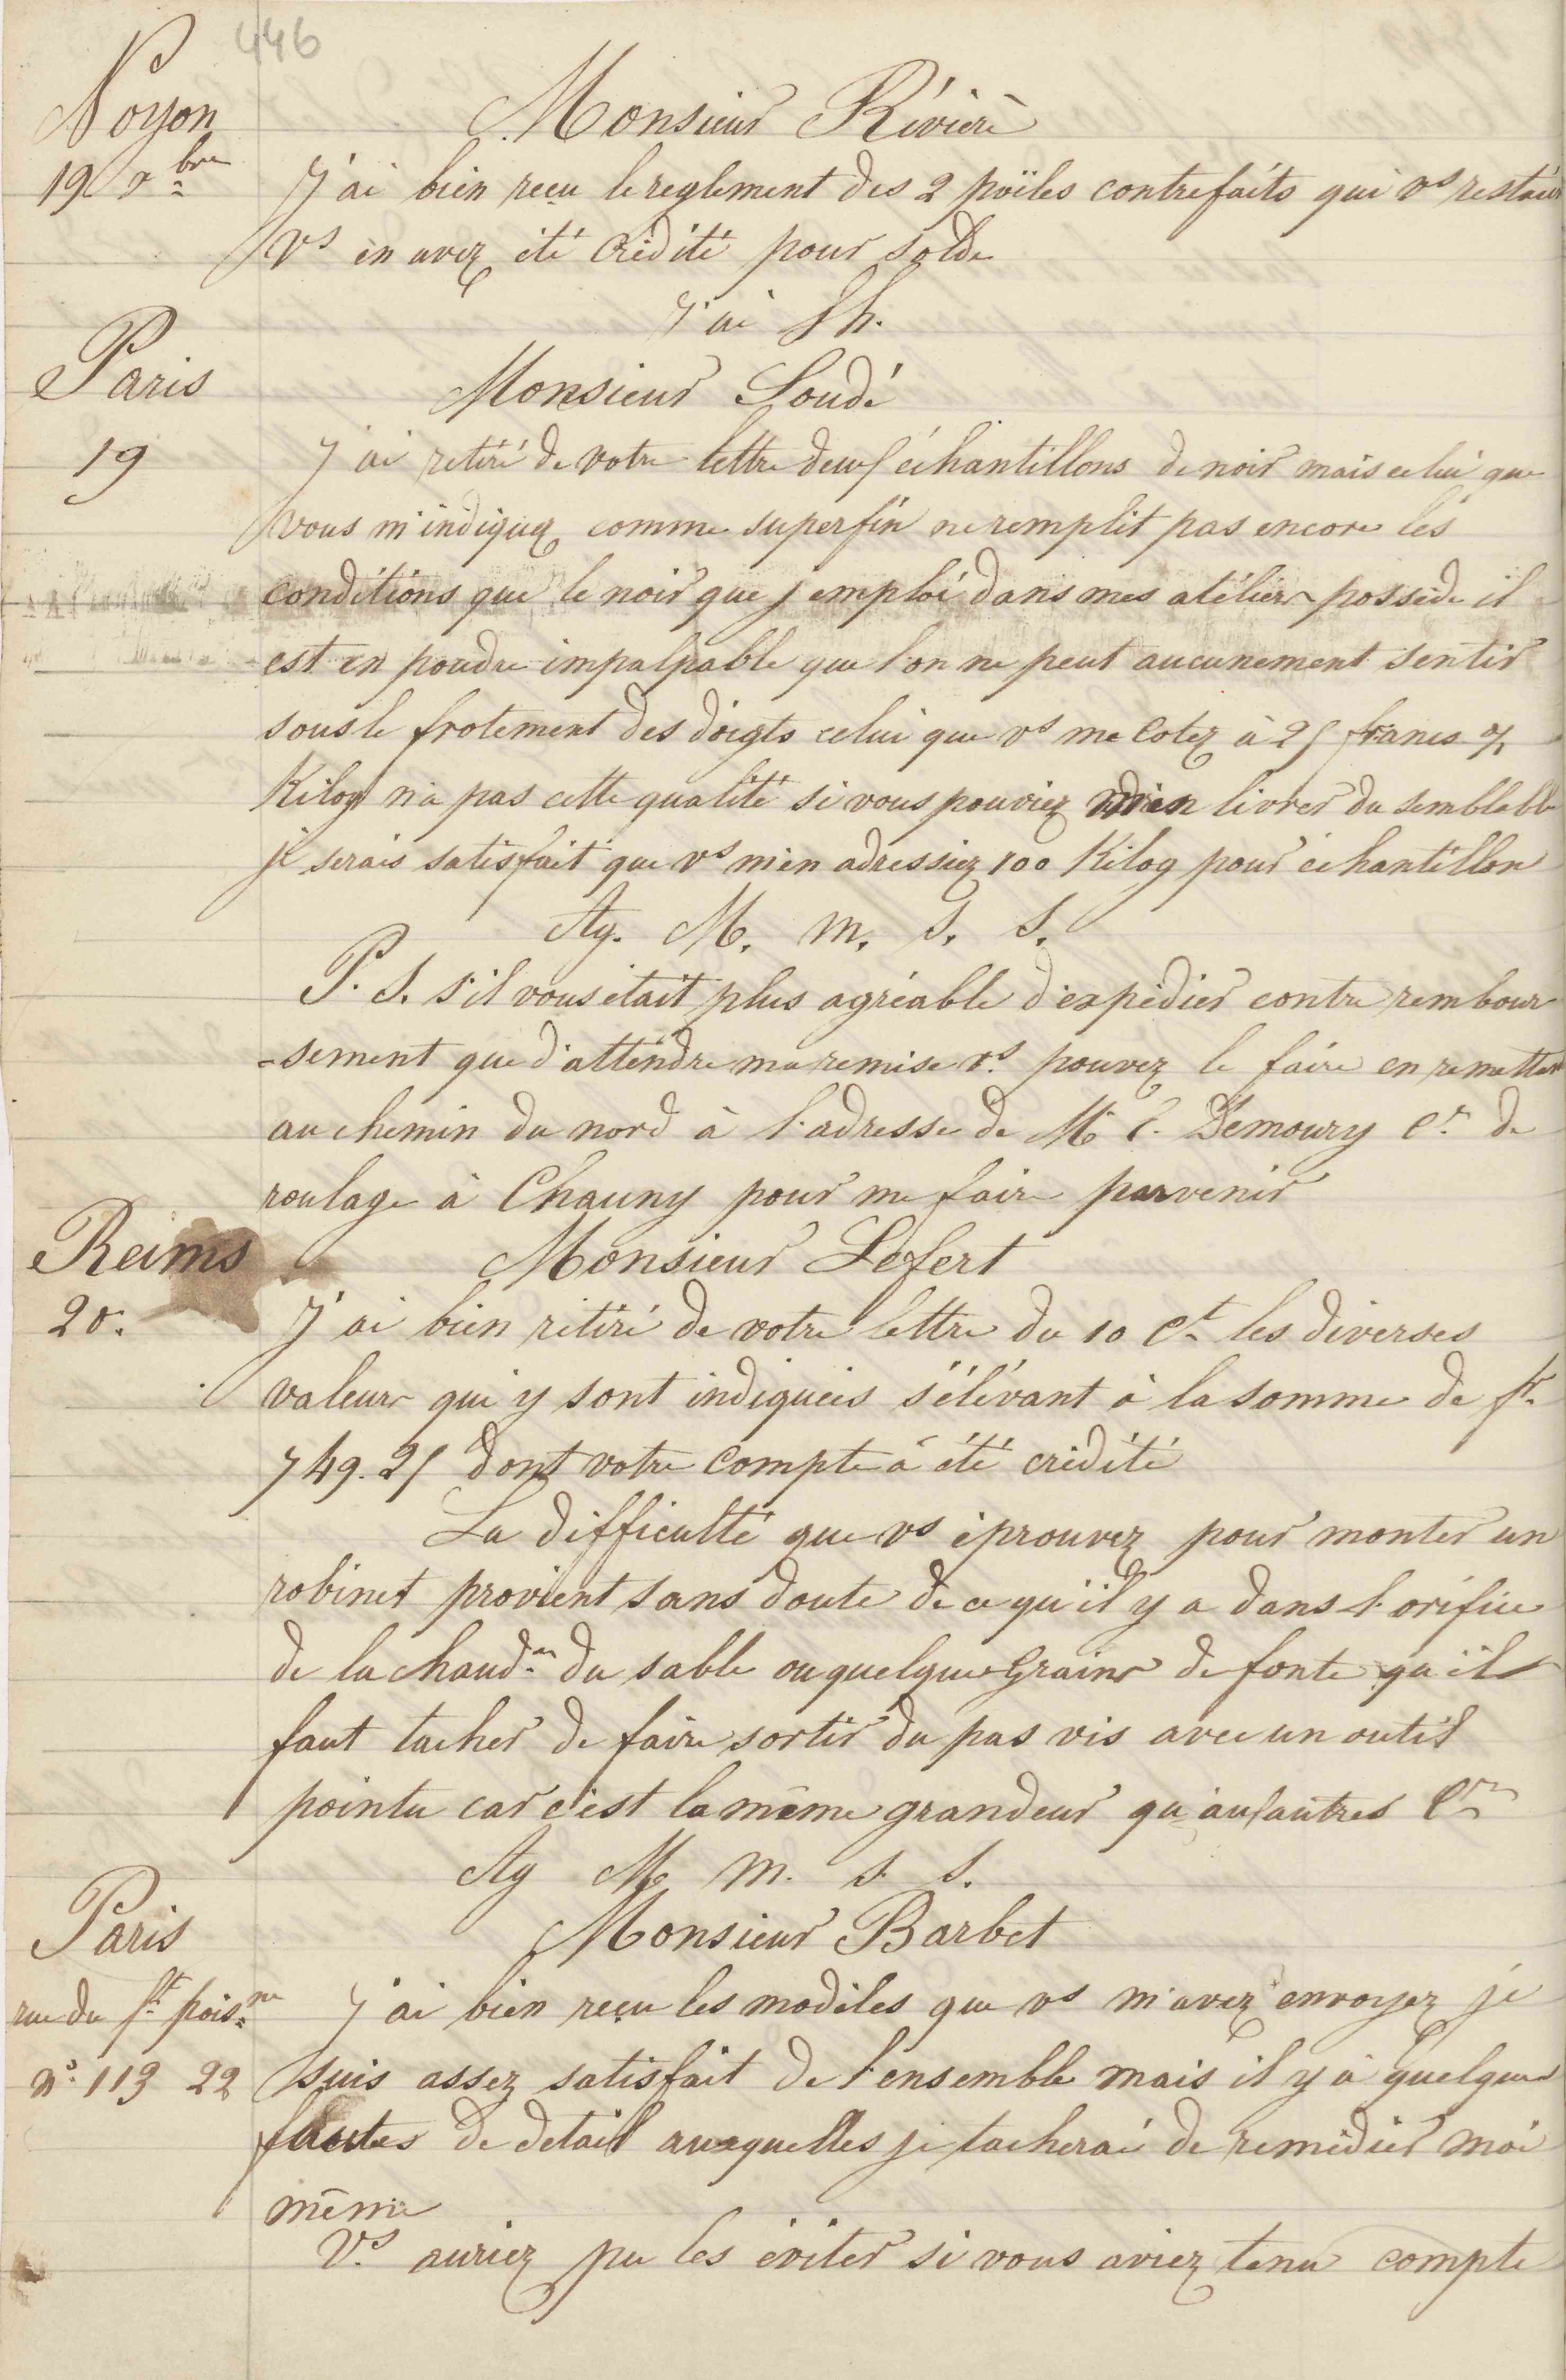 446
Noyon
19 xbre
Monsieur Rivière
J'ai bien reçu le reglement des 2 poëles contrefaits qui vs restait
Vs en avez été Crédité pour solde
J'ai Lh.
Paris
19
Monsieur Loudé
J'ai retiré de votre lettre deux échantillons de noir mais celui que
vous m'indiquez comme superfin ne remplit pas encore les
conditions que le noir que j'emploi dans mes atéliers possède il
est en poudre impalpable que l'on ne peut aucunement sentir
sous le frotement des doigts celui que vs me Cotez à 25 francs %
Kilog n'a pas cette qualité si vous pouviez m'en livrer du semblable
je serais satisfait que vs m'en adressiez 100 Kilog pour échantillon
Ag. M. m. S. S.
P. S. s'il vous était plus agréable d'expédier contre rembour
-sement que d'attendre ma remise vs pouvez le faire en remettant
au chemin du nord à l'adresse de Mr C. Demoury Cre de
roulage à Chauny pour me faire parvenir
Reims
20.
Monsieur Lefert
J'ai bien retiré de votre lettre du 10 Ct les diverses
valeurs qui y sont indiqueés s'élévant à la somme de fr.
749.25 dont votre Compte à été crédité
La difficulté que vs éprouvez pour monter un
robinet provient sans doute de ce qu'il y a dans l'orifice
de la chaudre du sable ou quelques Grains de fonte qu'il
faut tacher de faire sortir du pas vis avec un outil
pointu car c'est la même grandeur qu'aux autres Cres
Ag M m. s S.
Paris
rue du fg poisre
no 113 22
Monsieur Barbet
J'ai bien reçu les modèles que vs m'avez envoyez je
suis assez satisfait de l'ensemble mais il y a quelques
fautes de detail auxquelles je tacherai de remédier moi
même
Vs auriez pu les éviter si vous aviez tenu compte